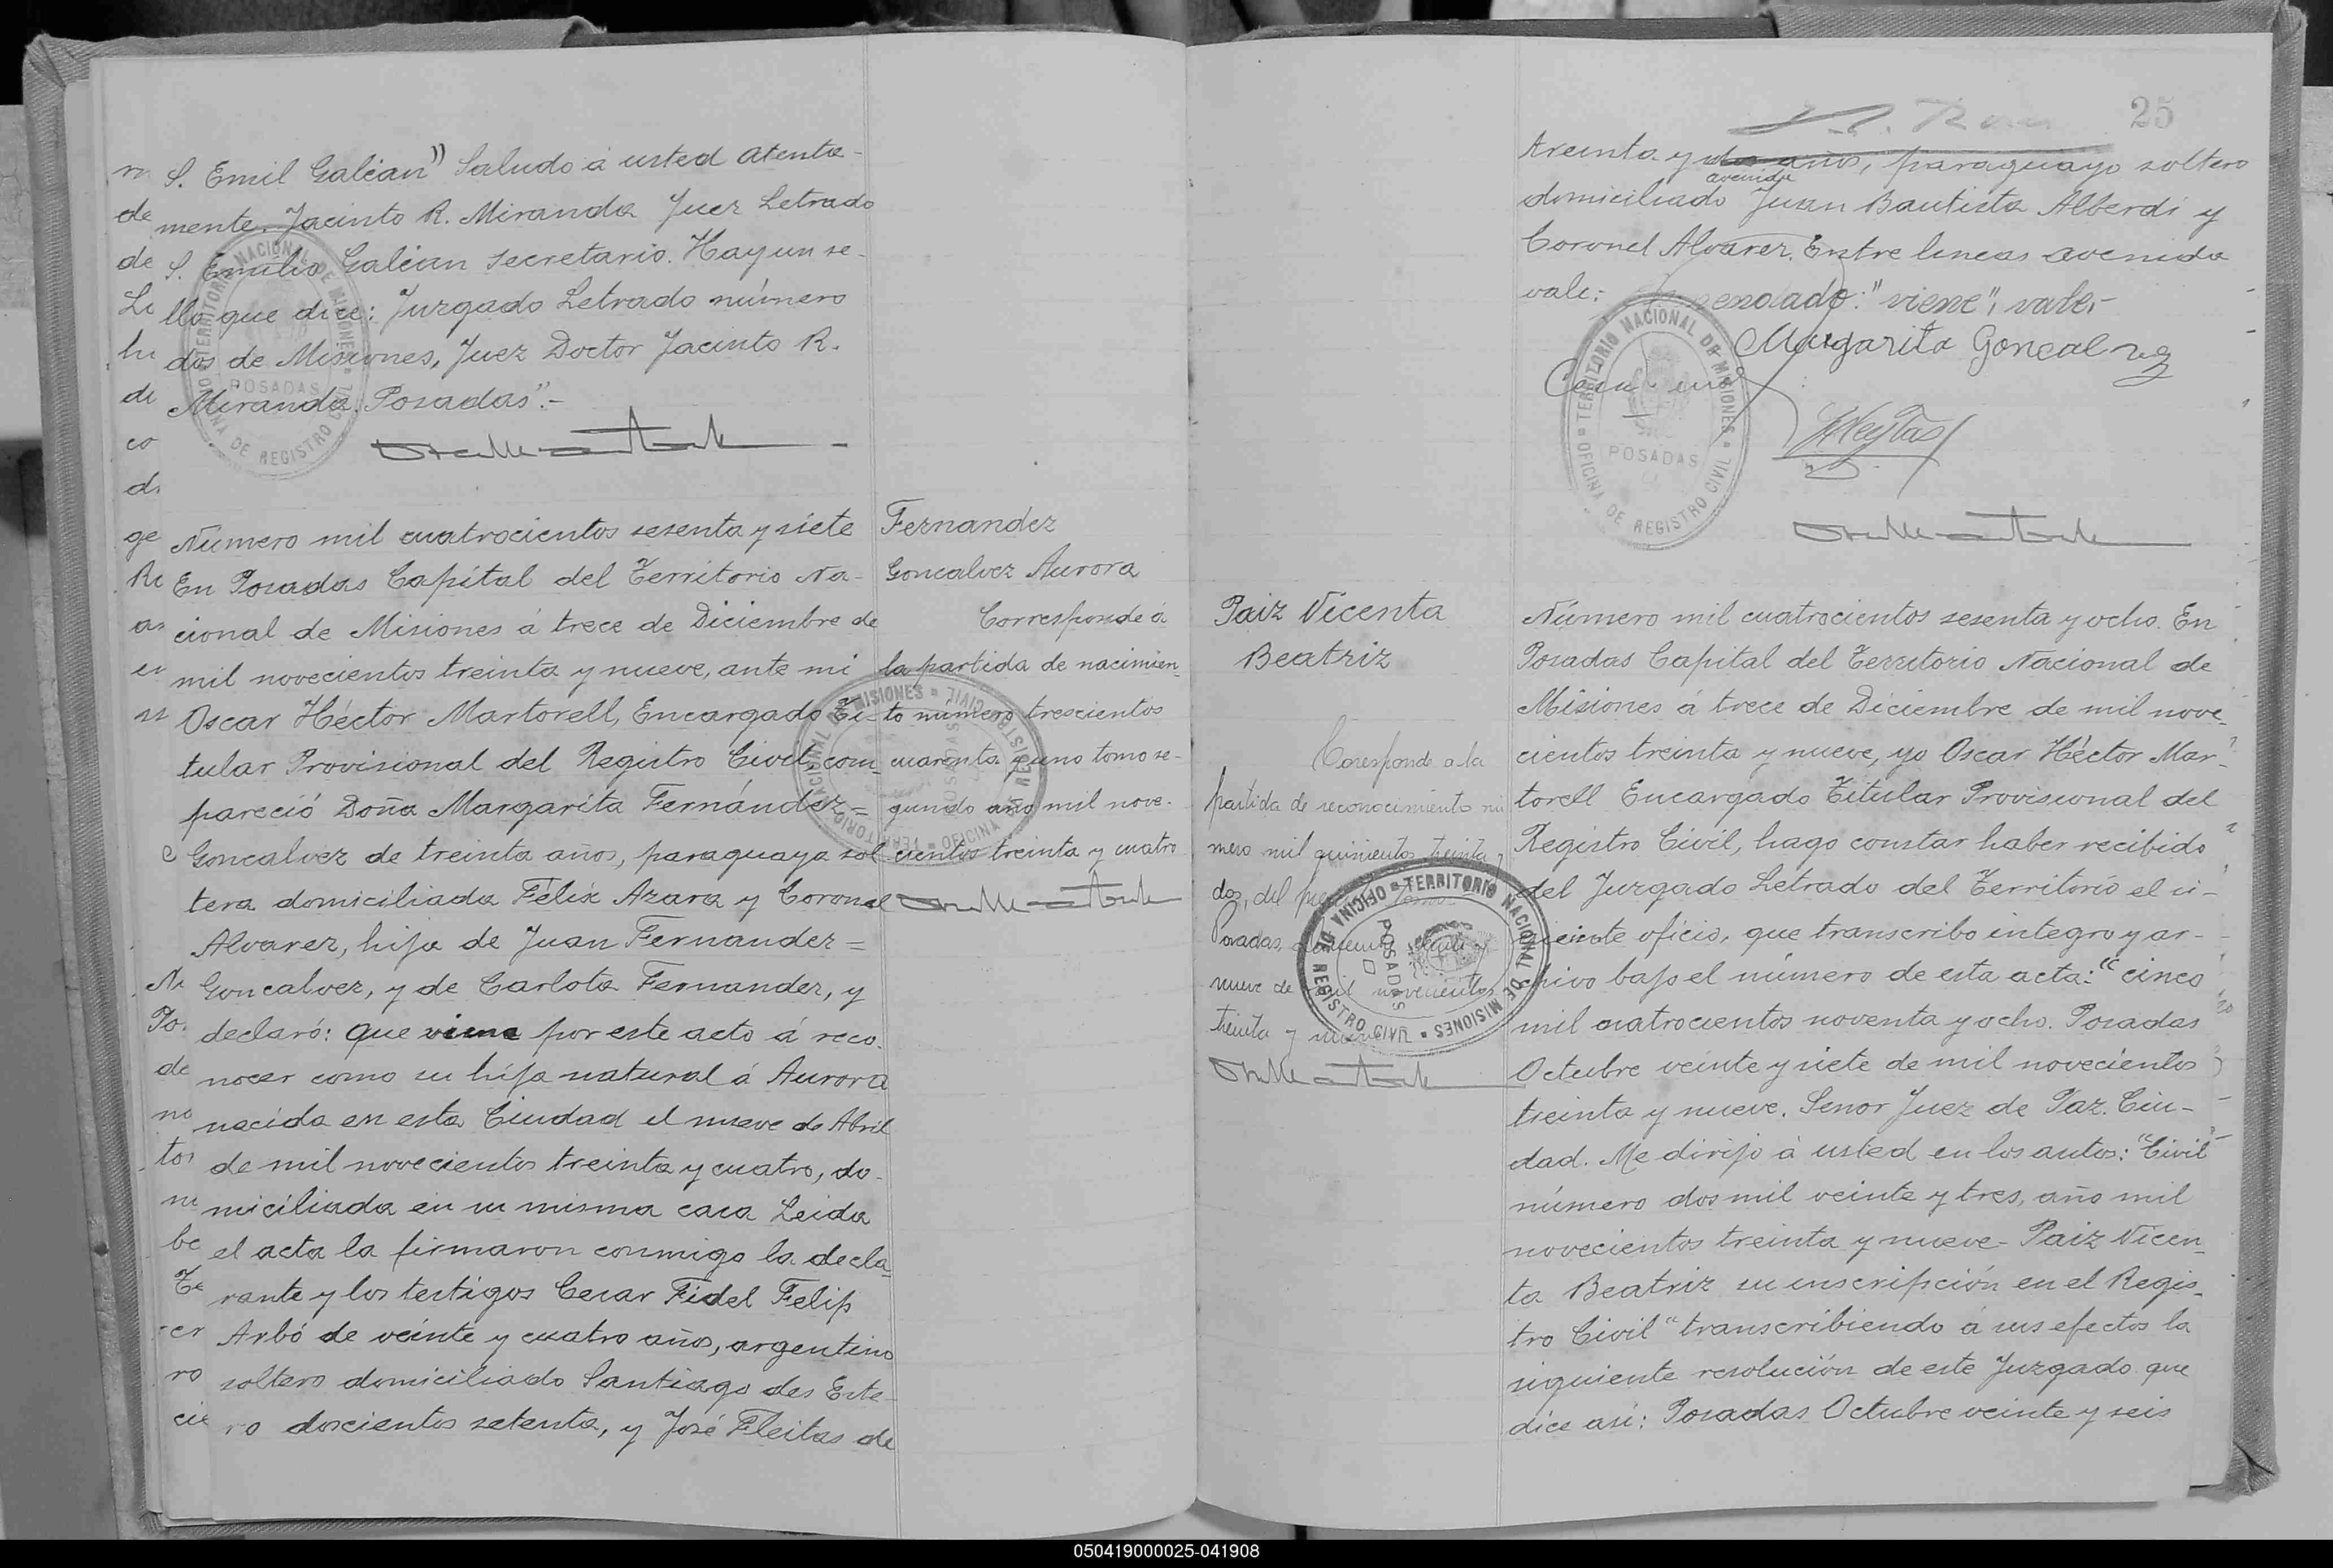 S. Emil Galéan" Saludo á usted atenta-
mente. Jacinto R. Miranda Juez Letrado
S. Emilio Galéan secretario. Hay un se-
llo que dice: Juzgado Letrado número
dos de Misiones, Juez Doctor Jacinto R.
Miranda. Posadas".-
Número mil cuatrocientos sesenta y siete
En Posadas Capital del Territorio Na-
cional de Misiones á trece de Diciembre de
mil novecientos treinta y nueve, ante mi
Oscar Héctor Martorell, Encargado Ti-
tular Provisional del Registro Civil, com-
pareció Doña Margarita Fernández=
Goncalvez de treinta años, paraguaya sol
tera domiciliada Félix Azara y Coronel
Alvarez, hija de Juan Fernandez=
Goncalvez, y de Carlota Fernandez, y
declaró: que viene por este acto á reco-
nocer como su hija natural á Aurora
nacida en esta Ciudad el nueve de Abril
de mil novecientos treinta y cuatro, do-
miciliada en su misma casa Leida
el acta la firmaron conmigo la decla-
rante y los testigos Cesar Fidel Felip
Arbó de veinte y cuatro años, argentino
soltero domiciliado Santiago des Este-
ro doscientos setenta, y José Fleitas de
Fernandez
Goncalvez Aurora
Corresponde á
la partida de nacimien-
to número trescientos
cuarenta y uno tomo se-
gundo año mil nove-
cientos treinta y cuatro
OFICINA DE REGISTRO CIVIL = TERRITORIO NACIONAL DE MISIONES =
POSADAS
25
treinta y dos años, paraguayo soltero
avenida
domiciliado Juan Bautista Alberdi y
Coronel Alvarez. Entre lineas avenida
vale:- "viene", vale.-
Margarita Goncalvez
OFICINA DE REGISTRO CIVIL = TERRITORIO NACIONAL DE MISIONES =
POSADAS
Paiz Vicenta
Beatriz
Corresponde a la
partida de reconocimiento nú
mero mil quinientos treinta y
dos, del
Posadas,
nueve de mil novecientos
treinta y nueve
OFICINA DE REGISTRO CIVIL = TERRITORIO NACIONAL DE MISIONES =
POSADAS
Número mil cuatrocientos sesenta y ocho. En
Posadas Capital del Territorio Nacional de
Misiones á trece de Diciembre de mil nove-
cientos treinta y nueve, yo Oscar Héctor Mar-
torell Encargado Titular Provisional del
Registro Civil, hago constar haber recibido
del Juzgado Letrado del Territorio el si-
guiente oficio, que transcribo integro y ar-
chivo bajo el número de esta acta: "cinco
mil cuatrocientos noventa y ocho. Posadas
Octubre veinte y siete de mil novecientos
treinta y nueve. Senor Juez de Paz. Ciu-
dad. Me dirijo á usted en los autos: "Civil
número dos mil veinte y tres, año mil
novecientos treinta y nueve- Paiz Vicen-
ta Beatriz su inscripción en el Regis-
tro Civil" transcribiendo á sus efectos la
siguiente resolución de este Juzgado que
dice así: Posadas Octubre veinte y seis
050419000025-041908